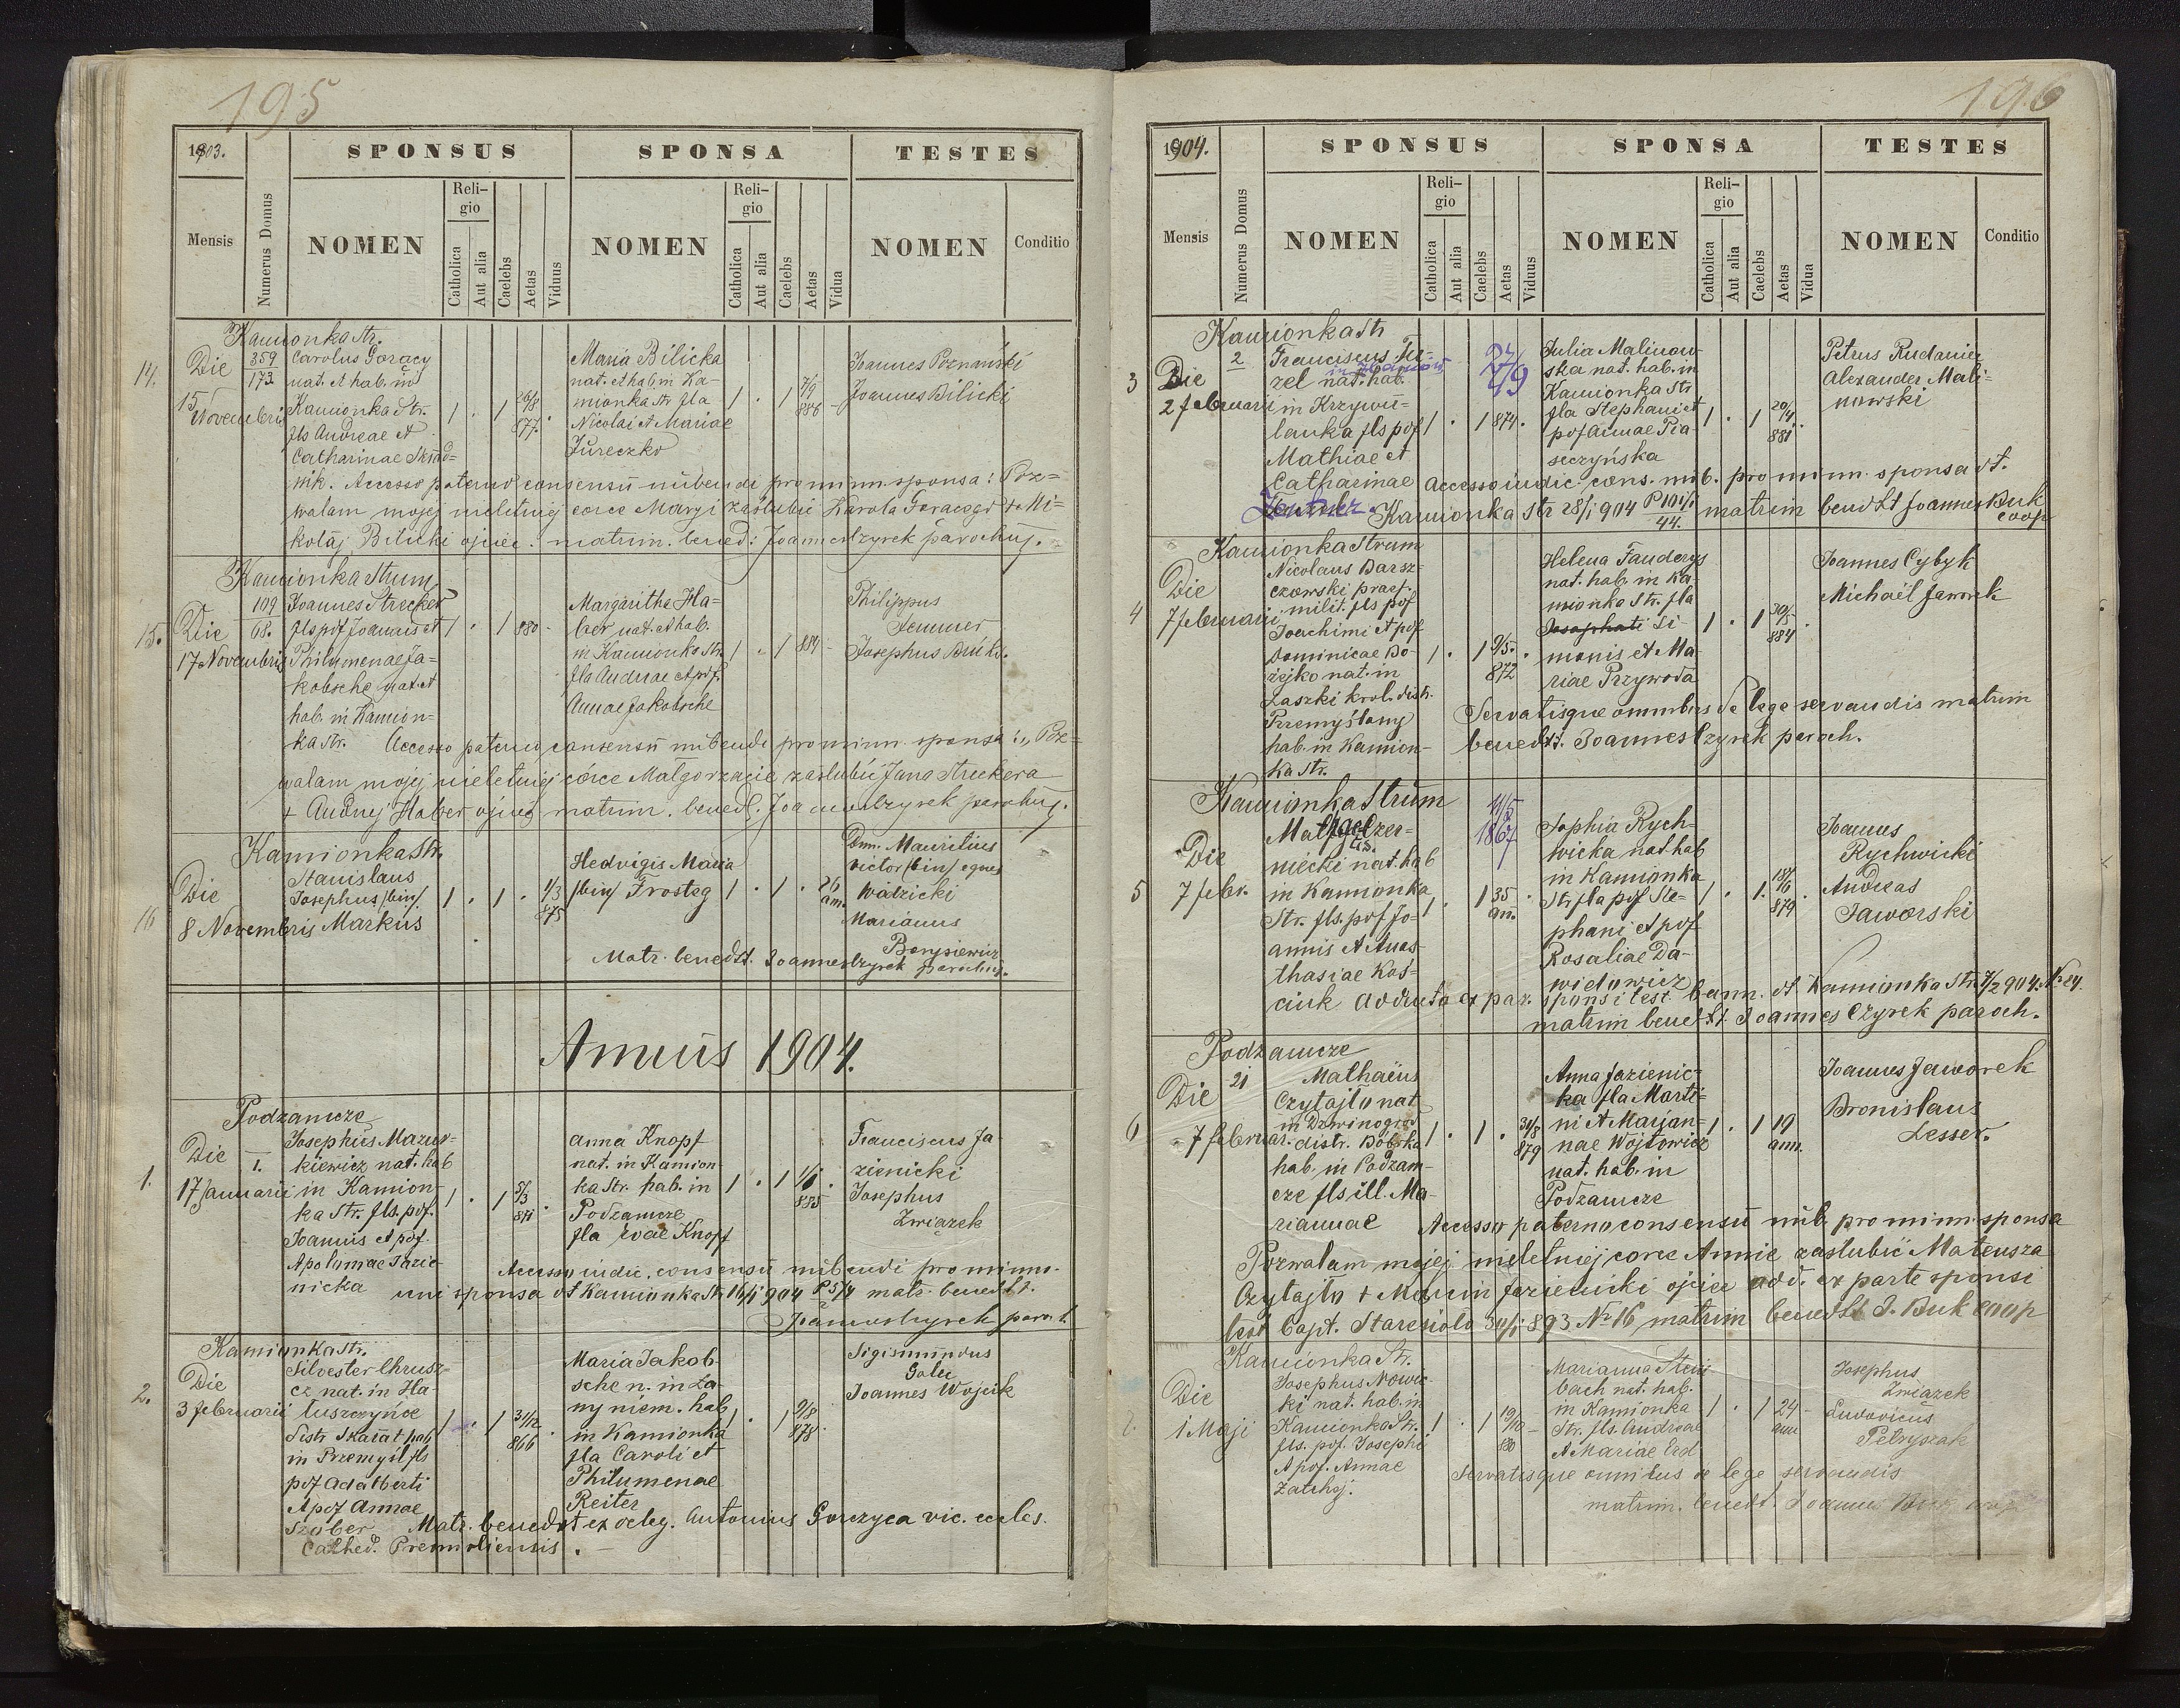 195
1903.
SPONSUS
SPONSA
TESTES
Mensis
Numerus Domus
NOMEN
Reli-
gio
Catholica
Aut alia
Caelebs
Aetas
Viduus
NOMEN
Reli-
gio
Catholica
Aut alia
Caelebs
Aetas
Vidua
NOMEN
Conditio
Kamionka Str.
14.
Die
15
Novembris
359
173
Carolus Gorący
nat. et hab. in
Kamionka Str.
fls Andreae et
Catharinae
1 . 1 26/8 877.
Maria Bilicka
nat. et hab. in Ka-
mionka Str fla
Nicolai et Mariae
Jureczko
1 . 1 7/9 886 -
Joannes Poznański
Joannes Bilicki
nik. Accesso paterno consensu nubendi pro minn. sponsa: Poz=
walam mojej nieletniej córce Maryi zaślubić Karola Gorącego + Mi-
kołaj Bilicki ojciec. matrim. bened: Joannes Czyrek parochus.
Kamionka Strum
15.
Die
17 Novembris
109
68.
Joannes Strecker
fls pof Joannis et
Philumenae Ja-
kobsche nat. et
hab. in Kamion=
ka Str.
1 . 1 880 -
Margaritha Ha-
ber nat. et hab.
in Kamionka Str.
fla Andreae et pof.
Annae Jakobsche
1 . 1 884 -
Philippus
Jemmer
Josephus
Accesso paterno consensu nubendi pro minn. sponsa: "Poz=
walam mojej nieletniej córce Małgorzacie zaślubić Jana Streckera
+ Andrzej Haber ojciec matrim. bened. Joannes Czyrek parochus.
Kamionka Str.
16
Die
8 Novembris
Stanislaus
Josephus /bin/
Markus
1 . 1 . 1/3 875
Hedvigis Maria
/bin/ Frosteg
1 . 1 . 26 ann.
Dnn. Mauritius
Victor /bin/ eques
Marianus
Borysiewicz
Matr. bened st. Joannes Czyrek parochus.
Annus 1904.
Podzamcze
1.
Die
17 Januarii
1.
Josephus Mazur-
kiewicz nat. hab
in Kamion-
ka Str. fls. pof.
Joannis et pof.
Apoloniae Jazie-
nicka
1 . 1 5/3 871 .
Anna Knopf
nat. in Kamion
ka Str. hab. in
Podzamcze
fla Evae Knopf
1 . 1 1/1 885 .
Franciscus Ja-
zienicki
Josephus
Związek
Accesso iudic. consensu nubendi pro minn-
uni sponsa dt Kamionka Str. 16/1 904 P 5/4 matr. bened st.
Joannes Czyrek paroch.
Kamionka Str.
2.
Die
3 februarii
Silvester Chrusz-
cz nat. in Ha-
łuszczyńce
distr Skałat hab
in Przemyśl fls
pof Adalberti
et pof Annae
Szuber
1 . 1 31/12 866
Maria Jakob-
sche n. in Ła-
ny niem. hab
in Kamionka
fla Caroli et
Philumenae
Reiter
1 . 1 9/8 878 .
Sigismundus
Golec
Joannes Wojcik
Matr. bened st ex deleg. Antonius Gorczyca vic. eccles.
Cathed. Premisliensis.
196
1904.
SPONSUS
SPONSA
TESTES
Mensis
Numerus Domus
NOMEN
Reli-
gio
Catholica
Aut alia
Caelebs
Aetas
Viduus
NOMEN
Reli-
gio
Catholica
Aut alia
Caelebs
Aetas
Vidua
NOMEN
Conditio
Kamionka Str
3
Die
2 februarii
2
Franciscus
zel nat. hab.
in Krzywu=
lanka fls pof
Mathiae et
Catharinae
1 . 1 874 .
Julia Malinow-
ska nat. hab. in
Kamionka Str
fla Stephani et
pof Annae Pia-
seczyńska
1 . 1 20/4 881 .
Petrus Rudanier
Alexander Mali-
nowski
accesso iudic cons. nub. pro minn. sponsa dt.
Kamionka Str 28/1 904 P 101/1 44. matrim bened st Joannes Buk
coop
Kamionka Strum
4
Die
7 februarii
Nicolaus Barsz-
czowski praef.
milit. fls pof
Joachimi et pof
Dominicae Bo-
żejko nat. in
Laszki krol. distr.
Przemyślany
hab. in Kamion-
ka Str.
1 . 1 9/5. 872
Helena Fanderys
nat. hab. in Ka-
mionka Str. fla
Josaphati Si-
monis et Ma-
riae Przywoda
1 . 1 30/5 884 .
Joannes Cybyk
Michaël Jaworek
Servatisque omnibus de lege servandis matrim
bened st. Joannes Czyrek paroch.
Kamionka Strum
5
Die
7 febr.
niecki nat. hab
in Kamionka
Str. fls. pof Jo-
annis et Anas-
thasiae Koś-
ciuk
1 . 1 35 an.
1867
Sophia Rych-
wicka nat. hab
in Kamionka
Str fla pof Ste-
phani et pof
Rosaliae Da-
widowicz
1 . 1. 18/ 879 .
Joannes
Rychwicki
Andreas
Jaworski
adducto ex par. sponsi test. bann. dt Kamionka Str. 7/2 904. No 84.
matrim bened st. Joannes Czyrek paroch.
Podzamcze
6
Die
7 februar.
21
Mathaeus
Czytajło nat
in Dzwinogród
distr. Bóbrka
hab. in Podzam-
cze fls ill. Ma-
riannae
1 . 1 . 31/8 879
Anna Jazienic-
ka fla Marti-
ni et Marjan-
nae Wojtowicz
nat. hab. in
Podzamcze
1 . 1 19 ann.
Joannes Jaworek
Bronislaus
Lesser.
Accesso paterno consensu nub. pro minn. sponsa
Pozwalam mojej nieletniej corce Annie zaslubić Mateusza
Czytajło + Marcin Jazienicki ojciec add. ex parte sponsi
test bapt. Staresioło 30/1 893 No 16 matrim bened st J. Buk coop
Kamionka Str.
7.
Die
1 Maji
Josephus Nowic-
ki nat. hab. in
Kamionka Str.
fls. pof. Josephi
et pof. Annae
Zatchej.
1 . 1 19/10 880 -
Marianna Stein
bach nat. hab.
in Kamionka
Str. fls. Andreae
et Mariae Erd
1 . 1 24 ann -
Josephus
Związek
Ludovicus
Petryszak
Servatisque omnibus de lege servandis
matrim. bened st. Joannes Buk coop